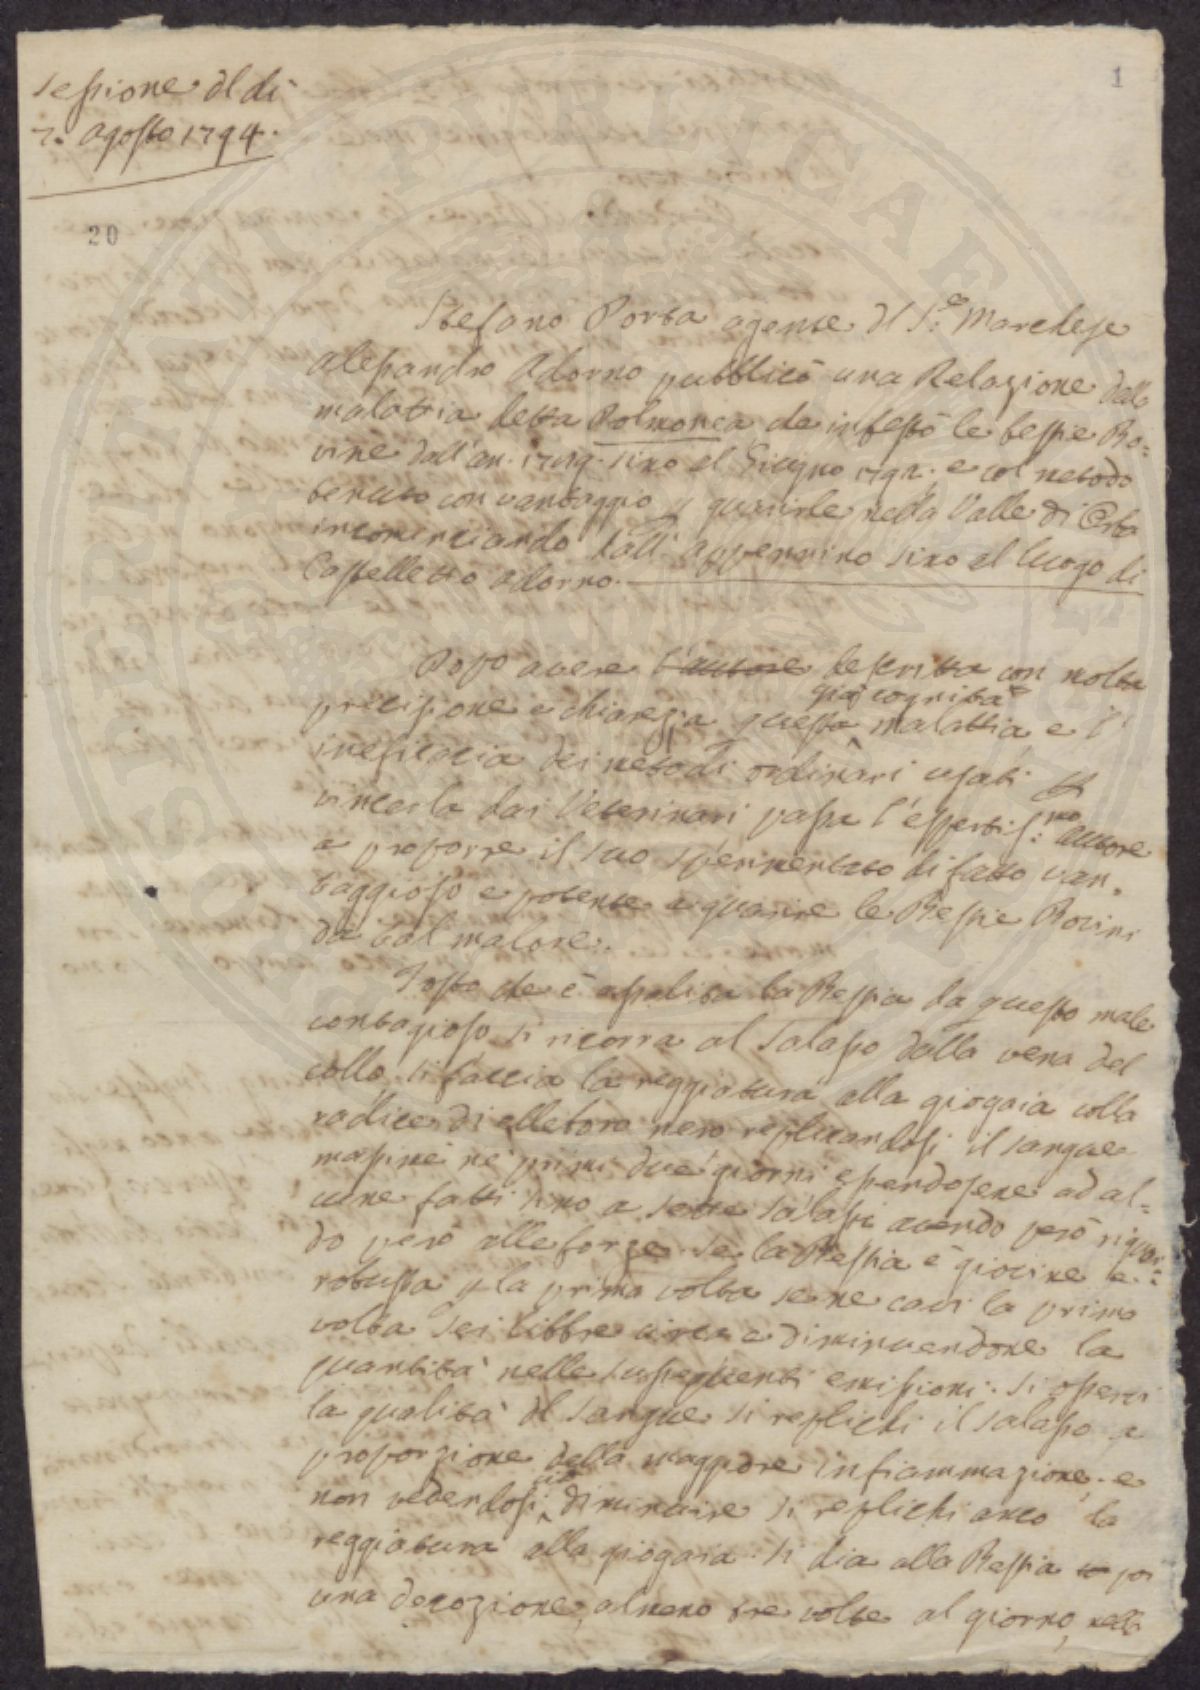 Sessione dl dì
7. Agosto 1794.
1
20
Stefano Porta agente dl S.e Marchese
Alessandro Adorno pubblicò una Relazione dalla
malattia detta Polmonea che infestò le bestie Bo=
vine dall'an. 1789. sino al Giugno 1792. e col metodo
tenuto con vantaggio p guarirle nella Valle di Orba
incominciando dall'appennino sino al luogo di
Castelletto Adorno.
Dopo avere l'autore descritta con molta
già cognita
precisione e chiarezza questa malattia, e l'
ineficacia dei metodi ordinari usati p
vincerla dai Veterinari passa l'espertiss.mo autore
a proporre il suo sperimentato di fatto van=
taggioso e potente a guarire le Bestie Bovine
da tal malore.
Tosto che è assalita la Bestia da questo male
contagioso si ricorra al salasso dalla vena del
collo, si faccia la reggiatura alla giogaia colla
radice di elleboro nero replicandosi il sangue
massime ne' primi due giorni essendosene ad al=
cune fatti sino a sette salassi avendo però riguar=
do però alle forze. Se la Bestia è giovine e
robusta p la prima volta se ne cavi la prima
volta sei libbre circa e diminuendone la
quantità nelle susseguenti emissioni. Si osservi
la qualità dl sangue, si replichi il salasso a
proporzione della maggiore infiammazione, e
non vedendosi diminuire si replichi anco la
reggiatura alla giogaia. Si dia alla Bestia poi
una decozione, almeno tre volte al giorno, nella